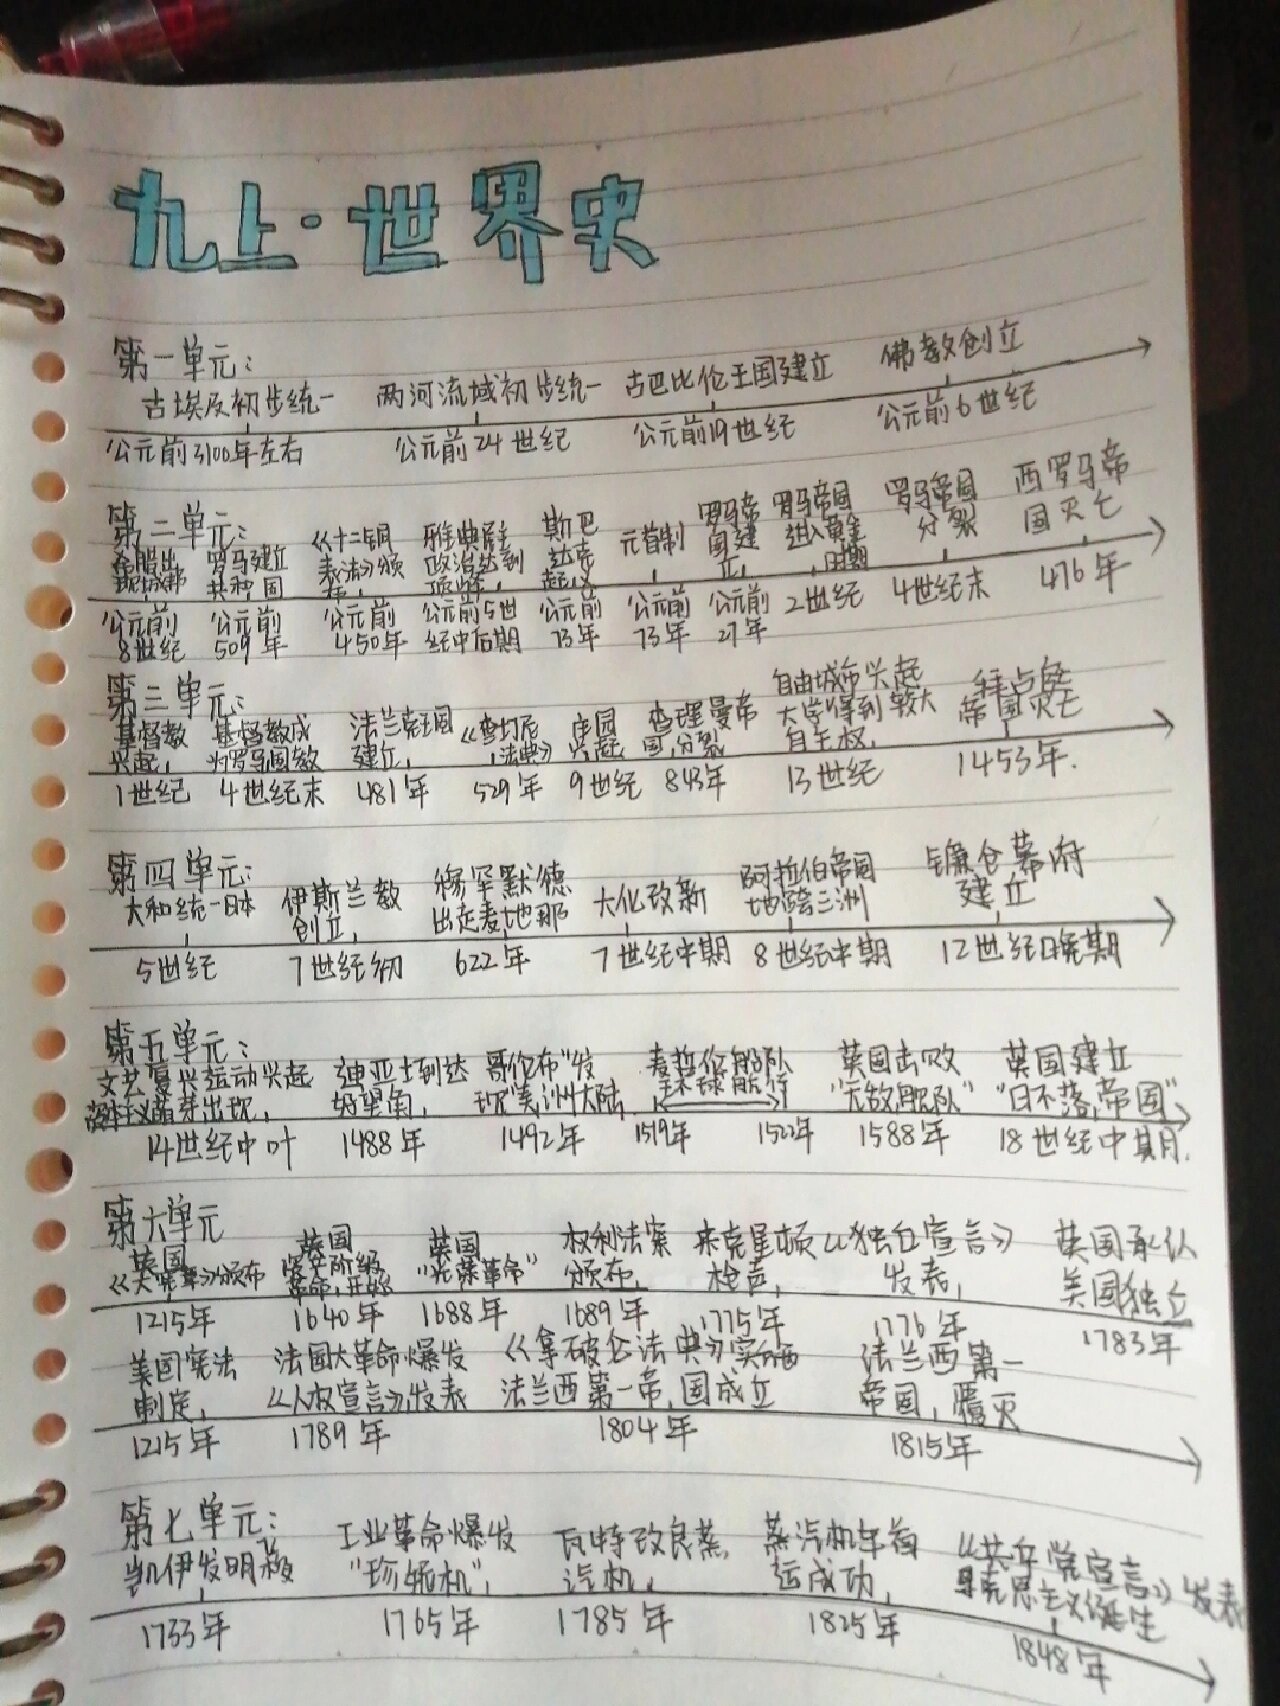 九上·世界史
第一单元：
古埃及初步统一 两河流域初步统一 古巴比伦王国建立 佛教创立
公元前3100年左右 公元前24世纪 公元前19世纪 公元前6世纪
第二单元：
希腊出现城邦 罗马建立共和国 《十二铜表法》颁布 雅典民主政治达到顶峰 斯巴达克起义 元首制 罗马帝国建立 罗马帝国进入黄金时期 罗马帝国分裂 西罗马帝国灭亡
公元前8世纪 公元前509年 公元前450年 公元前5世纪中后期 公元前73年 公元前73年 公元前27年 2世纪 4世纪末 476年
第三单元：
基督教兴起 基督教成为罗马国教 法兰克王国建立 《查士丁尼法典》 庄园兴起 查理曼帝国分裂 自由城市兴起 大学得到较大自主权 拜占庭帝国灭亡
1世纪 4世纪末 481年 529年 9世纪 843年 13世纪 1453年.
第四单元：
大和统一日本 伊斯兰教创立 穆罕默德出走麦地那 大化改新 阿拉伯帝国地跨三洲 镰仓幕府建立
5世纪 7世纪初 622年 7世纪中期 8世纪中期 12世纪晚期
第五单元：
文艺复兴运动兴起 资本主义萌芽出现 迪亚士到达好望角 哥伦布“发现”美洲大陆 麦哲伦船队环球航行 英国击败“无敌舰队”英国建立“日不落帝国”
14世纪中叶 1488年 1492年 1519年 1522年 1588年 18世纪中期.
第六单元
英国《大宪章》颁布 英国资产阶级革命开始 英国“光荣革命” 权利法案颁布 来克星顿枪声 《独立宣言》发表 英国承认美国独立
1215年 1640年 1688年 1689年 1775年 1776年 1783年
美国宪法制定 法国大革命爆发《人权宣言》发表 《拿破仑法典》实施 法兰西第一帝国成立 法兰西第一帝国覆灭
1215年 1789年 1804年 1815年
第七单元：
凯伊发明飞梭 工业革命爆发“珍妮机” 瓦特改良蒸汽机 蒸汽机车首运成功 《共产党宣言》发表 马克思主义诞生
1733年 1765年 1785年 1825年 1848年